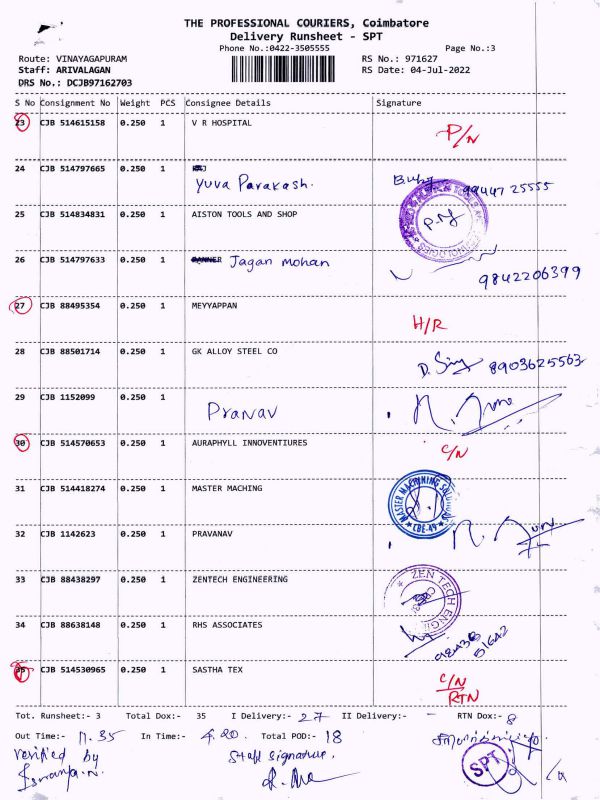 THE PROFESSIONAL COURIERS, Coimbatore
Delivery Runsheet - SPT
Phone No.:0422-3505555 Page No.:3
Route: VINAYAGAPURAM RS No.: 971627
Staff: ARIVALAGAN RS Date: 04-Jul-2022
DRS No.: DCJB97162703
S No Consignment No Weight PCS Consignee Details Signature
23 CJB 514615158 0.250 1 V R HOSPITAL P/N
24 CJB 514797665 0.250 1 Yuva Parakash. 99447 25555
25 CJB 514834831 0.250 1 AISTON TOOLS AND SHOP
26 CJB 514797633 0.250 1 BANNER Jagan mohan 9842206399
27 CJB 88495354 0.250 1 MEYYAPPAN H/R
28 CJB 88501714 0.250 1 GK ALLOY STEEL CO 8903625563
29 CJB 1152099 0.250 1 Pranav
30 CJB 514570653 0.250 1 AURAPHYLL INNOVENTIURES C/N
31 CJB 514418274 0.250 1 MASTER MACHING MASTER MACHINING SOLUTIONS CBE-49
32 CJB 1142623 0.250 1 PRAVANAV
33 CJB 88438297 0.250 1 ZENTECH ENGINEERING ZEN TECH
34 CJB 88638148 0.250 1 RHS ASSOCIATES
35 CJB 514530965 0.250 1 SASTHA TEX C/N RTN
Tot. Runsheet:- 3 Total Dox:- 35 I Delivery:- 27 II Delivery:- - RTN Dox:- 8
Out Time:- 11.35 In Time:- 4.20 Total POD:- 18
Verified by Staff signature. SPT